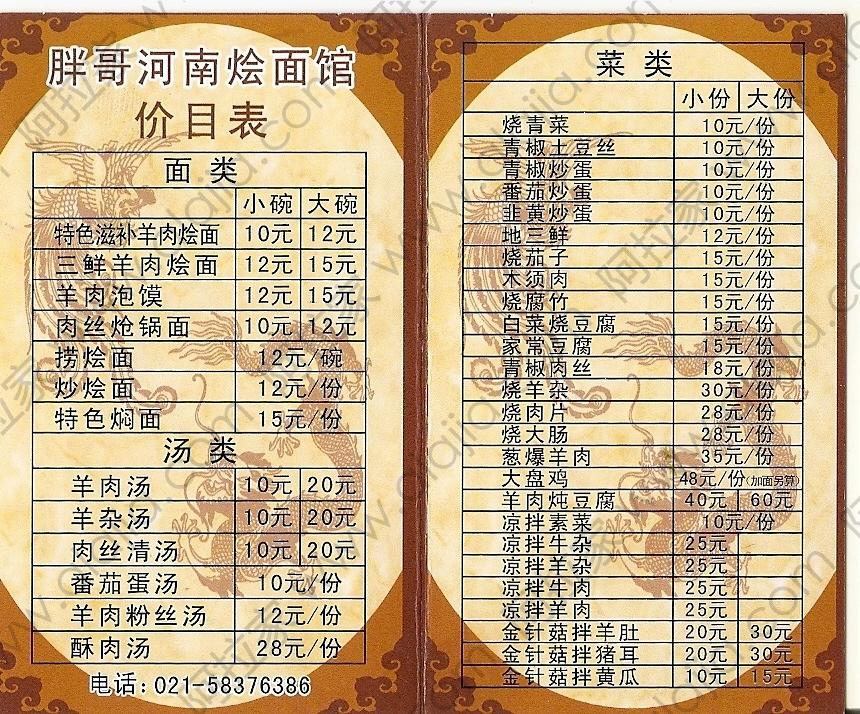 胖哥河南烩面馆
价目表
面类
小碗 大碗
特色滋补羊肉烩面 10元 12元
三鲜羊肉烩面 12元 15元
羊肉泡馍 12元 15元
肉丝炝锅面 10元 12元
捞烩面 12元/碗
炒烩面 12元/份
特色焖面 15元/份
汤类
羊肉汤 10元 20元
羊杂汤 10元 20元
肉丝清汤 10元 20元
番茄蛋汤 10元/份
羊肉粉丝汤 12元/份
酥肉汤 28元/份
电话:021-58376386
菜类
小份 大份
烧青菜 10元/份
青椒土豆丝 10元/份
青椒炒蛋 10元/份
番茄炒蛋 10元/份
韭黄炒蛋 10元/份
地三鲜 12元/份
烧茄子 15元/份
木须肉 15元/份
烧腐竹 15元/份
白菜烧豆腐 15元/份
家常豆腐 15元/份
青椒肉丝 18元/份
烧羊杂 30元/份
烧肉片 28元/份
烧大肠 28元/份
葱爆羊肉 35元/份
大盘鸡 48元/份(加面另算)
羊肉炖豆腐 40元 60元
凉拌素菜 10元/份
凉拌牛杂 25元
凉拌羊杂 25元
凉拌牛肉 25元
凉拌羊肉 25元
金针菇拌羊肚 20元 30元
金针菇拌猪耳 20元 30元
金针菇拌黄瓜 10元 15元
阿拉家 www.alajia.com